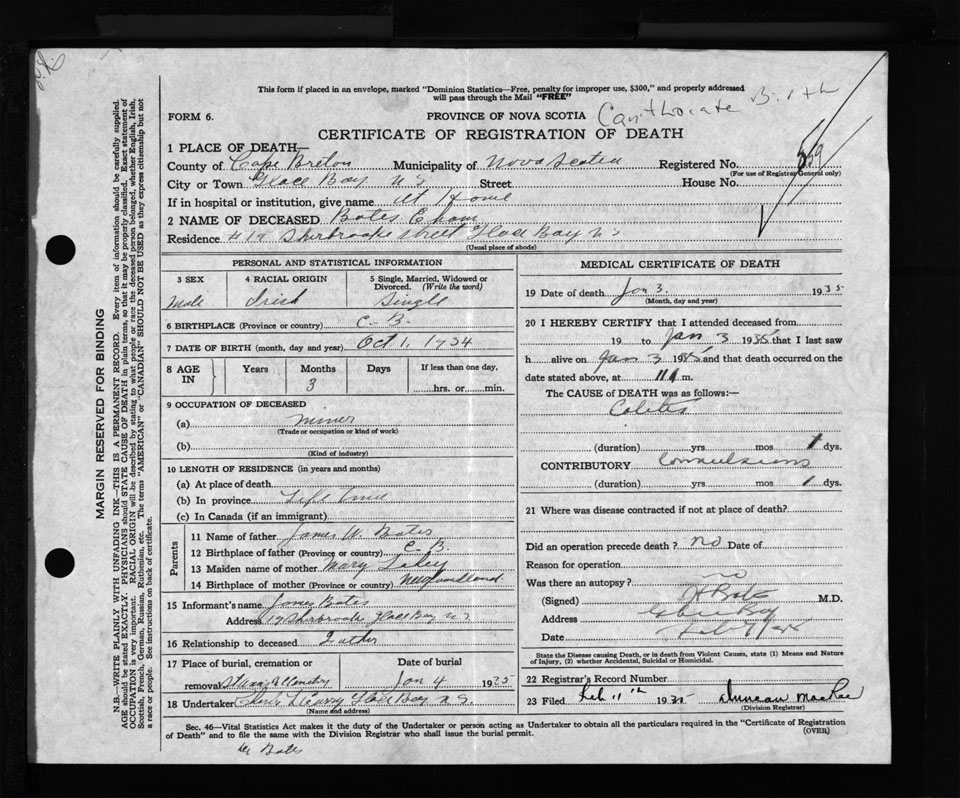 This form if placed in an envelope, marked "Dominion Statistics—Free, penalty for improper use, $300," and properly addressed
will pass through the Mail "FREE"
FORM 6.
PROVINCE OF NOVA SCOTIA
CERTIFICATE OF REGISTRATION OF DEATH
1 PLACE OF DEATH—
County of Cape Breton Municipality of Nova Scotia Registered No.
(For use of Registrar General only)
City or Town Glace Bay N S Street House No.
If in hospital or institution, give name at Home
2 NAME OF DECEASED Bates
Residence # 19 Sherbrooke street Glace Bay N S
(Usual place of abode)
PERSONAL AND STATISTICAL INFORMATION
3 SEX 4 RACIAL ORIGIN 5 Single, Married, Widowed or Divorced. (Write the word)
Male Irish Single
6 BIRTHPLACE (Province or country) C. B.
7 DATE OF BIRTH (month, day and year) Oct 1, 1934
8 AGE IN Years Months Days If less than one day,
3 hrs. or min.
9 OCCUPATION OF DECEASED
(a) miner
(Trade or occupation or kind of work)
(b)
(Kind of industry)
10 LENGTH OF RESIDENCE (in years and months)
(a) At place of death
(b) In province Life time
(c) In Canada (if an immigrant)
Parents
11 Name of father James W. Bates
12 Birthplace of father (Province or country) C. B.
13 Maiden name of mother Mary
14 Birthplace of mother (Province or country) Newfoundland
15 Informant's name Bates
Address 19 Sherbrooke Glace Bay N S
16 Relationship to deceased Father
17 Place of burial, cremation or removal Date of burial
Jan 4 1935
18 Undertaker Glace Bay N. S.
(Name and address)
MEDICAL CERTIFICATE OF DEATH
19 Date of death Jan 3. 1935
(Month, day and year)
20 I HEREBY CERTIFY that I attended deceased from
19 to Jan 3 1935 that I last saw
h alive on Jan 3 1935 and that death occurred on
date stated above, at 11 m.
The CAUSE of DEATH was as follows:—
Colitis
(duration) yrs mos 1 dys.
CONTRIBUTORY Convulsions
(duration) yrs mos 1 dys.
21 Where was disease contracted if not at place of death?
Did an operation precede death? no Date of
Reason for operation
Was there an autopsy? no
(Signed) M.D.
Address Glace Bay
Date
State the Disease causing Death, or in death from Violent Causes, state (1) Means and Nature
of Injury, (2) whether Accidental, Suicidal or Homicidal.
22 Registrar's Record Number
23 Filed Feb 11th 1935 Duncan MacRae
(Division Registrar)
Sec. 46—Vital Statistics Act makes it the duty of the Undertaker or person acting as Undertaker to obtain all the particulars required in the "Certificate of Registration
of Death" and to file the same with the Division Registrar who shall issue the burial permit.
(OVER)
Bates
MARGIN RESERVED FOR BINDING
N.B.—WRITE PLAINLY WITH UNFADING INK—THIS IS A PERMANENT RECORD. Every item of information should be carefully supplied.
AGE should be stated EXACTLY. PHYSICIANS should STATE CAUSE OF DEATH in plain terms, so that it may be properly classified. Exact statement of
OCCUPATION is very important. RACIAL ORIGIN will be described by stating to what people or race the deceased person belonged, whether English, Irish,
Scottish, French, German, Russian, Ruthenian, etc. The terms "AMERICAN" or "CANADIAN" SHOULD NOT BE USED as they express citizenship but not
a race or people. See instructions on back of certificate.